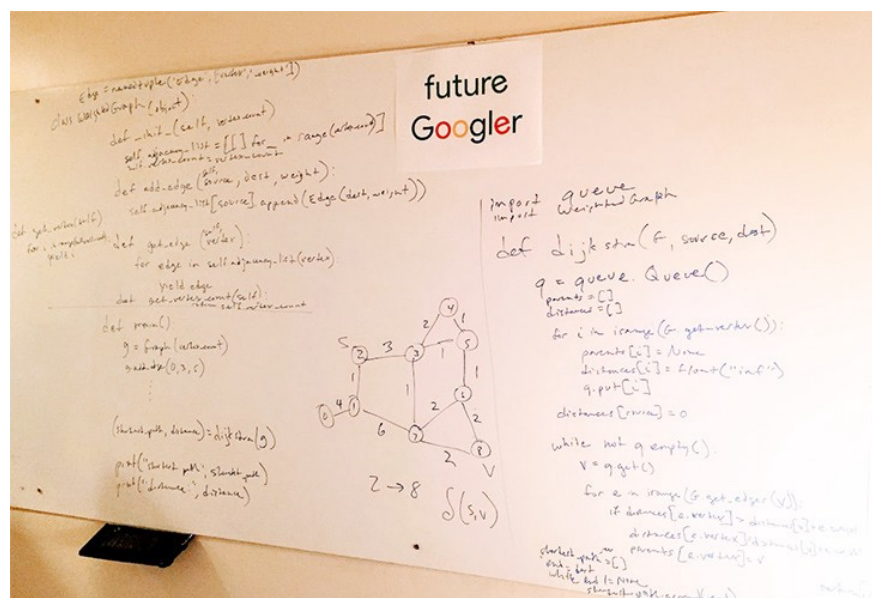 future
Googler
Edge = namedtuple('Edge', ['vertex', 'weight'])
class WeightedGraph(object):
def __init__(self, vertex_count)
self.adjacency_list = [[] for _ in range(vertex_count)]
self.vertex_count = vertex_count
def add_edge(self, source, dest, weight):
self.adjacency_list[source].append(Edge(dest, weight))
def get_vertex(self)
yield i
def get_edge(self, vertex):
for edge in self.adjacency_list(vertex):
yield edge
def get_vertex_count(self):
return self.vertex_count
def main()
g = Graph(vertex_count)
g.add_edge(0,3,5)
(shortest_path, distance) = dijkstra(g)
print("shortest path:", shortest_path)
print("distance:", distance)
S 4
2 3 3 2 1
5
1 1 1 1
0 4 1 6 2
6 7 2
2 8
V
2 → 8
δ(s,v)
import queue
import WeightedGraph
def dijkstra(G, source, dest)
q = queue.Queue()
parents = []
distances = []
for i in irange(G.get_vertex()):
parents[i] = None
distances[i] = float("inf")
q.put[i]
distances[source] = 0
while not q.empty():
v = q.get()
for e in irange(G.get_edges(v)):
if distances[e.vertex] > distances[v] + e
distances[e.vertex]
parents[e.vertex] = v
shortest_path = []
end = dest
while end != None